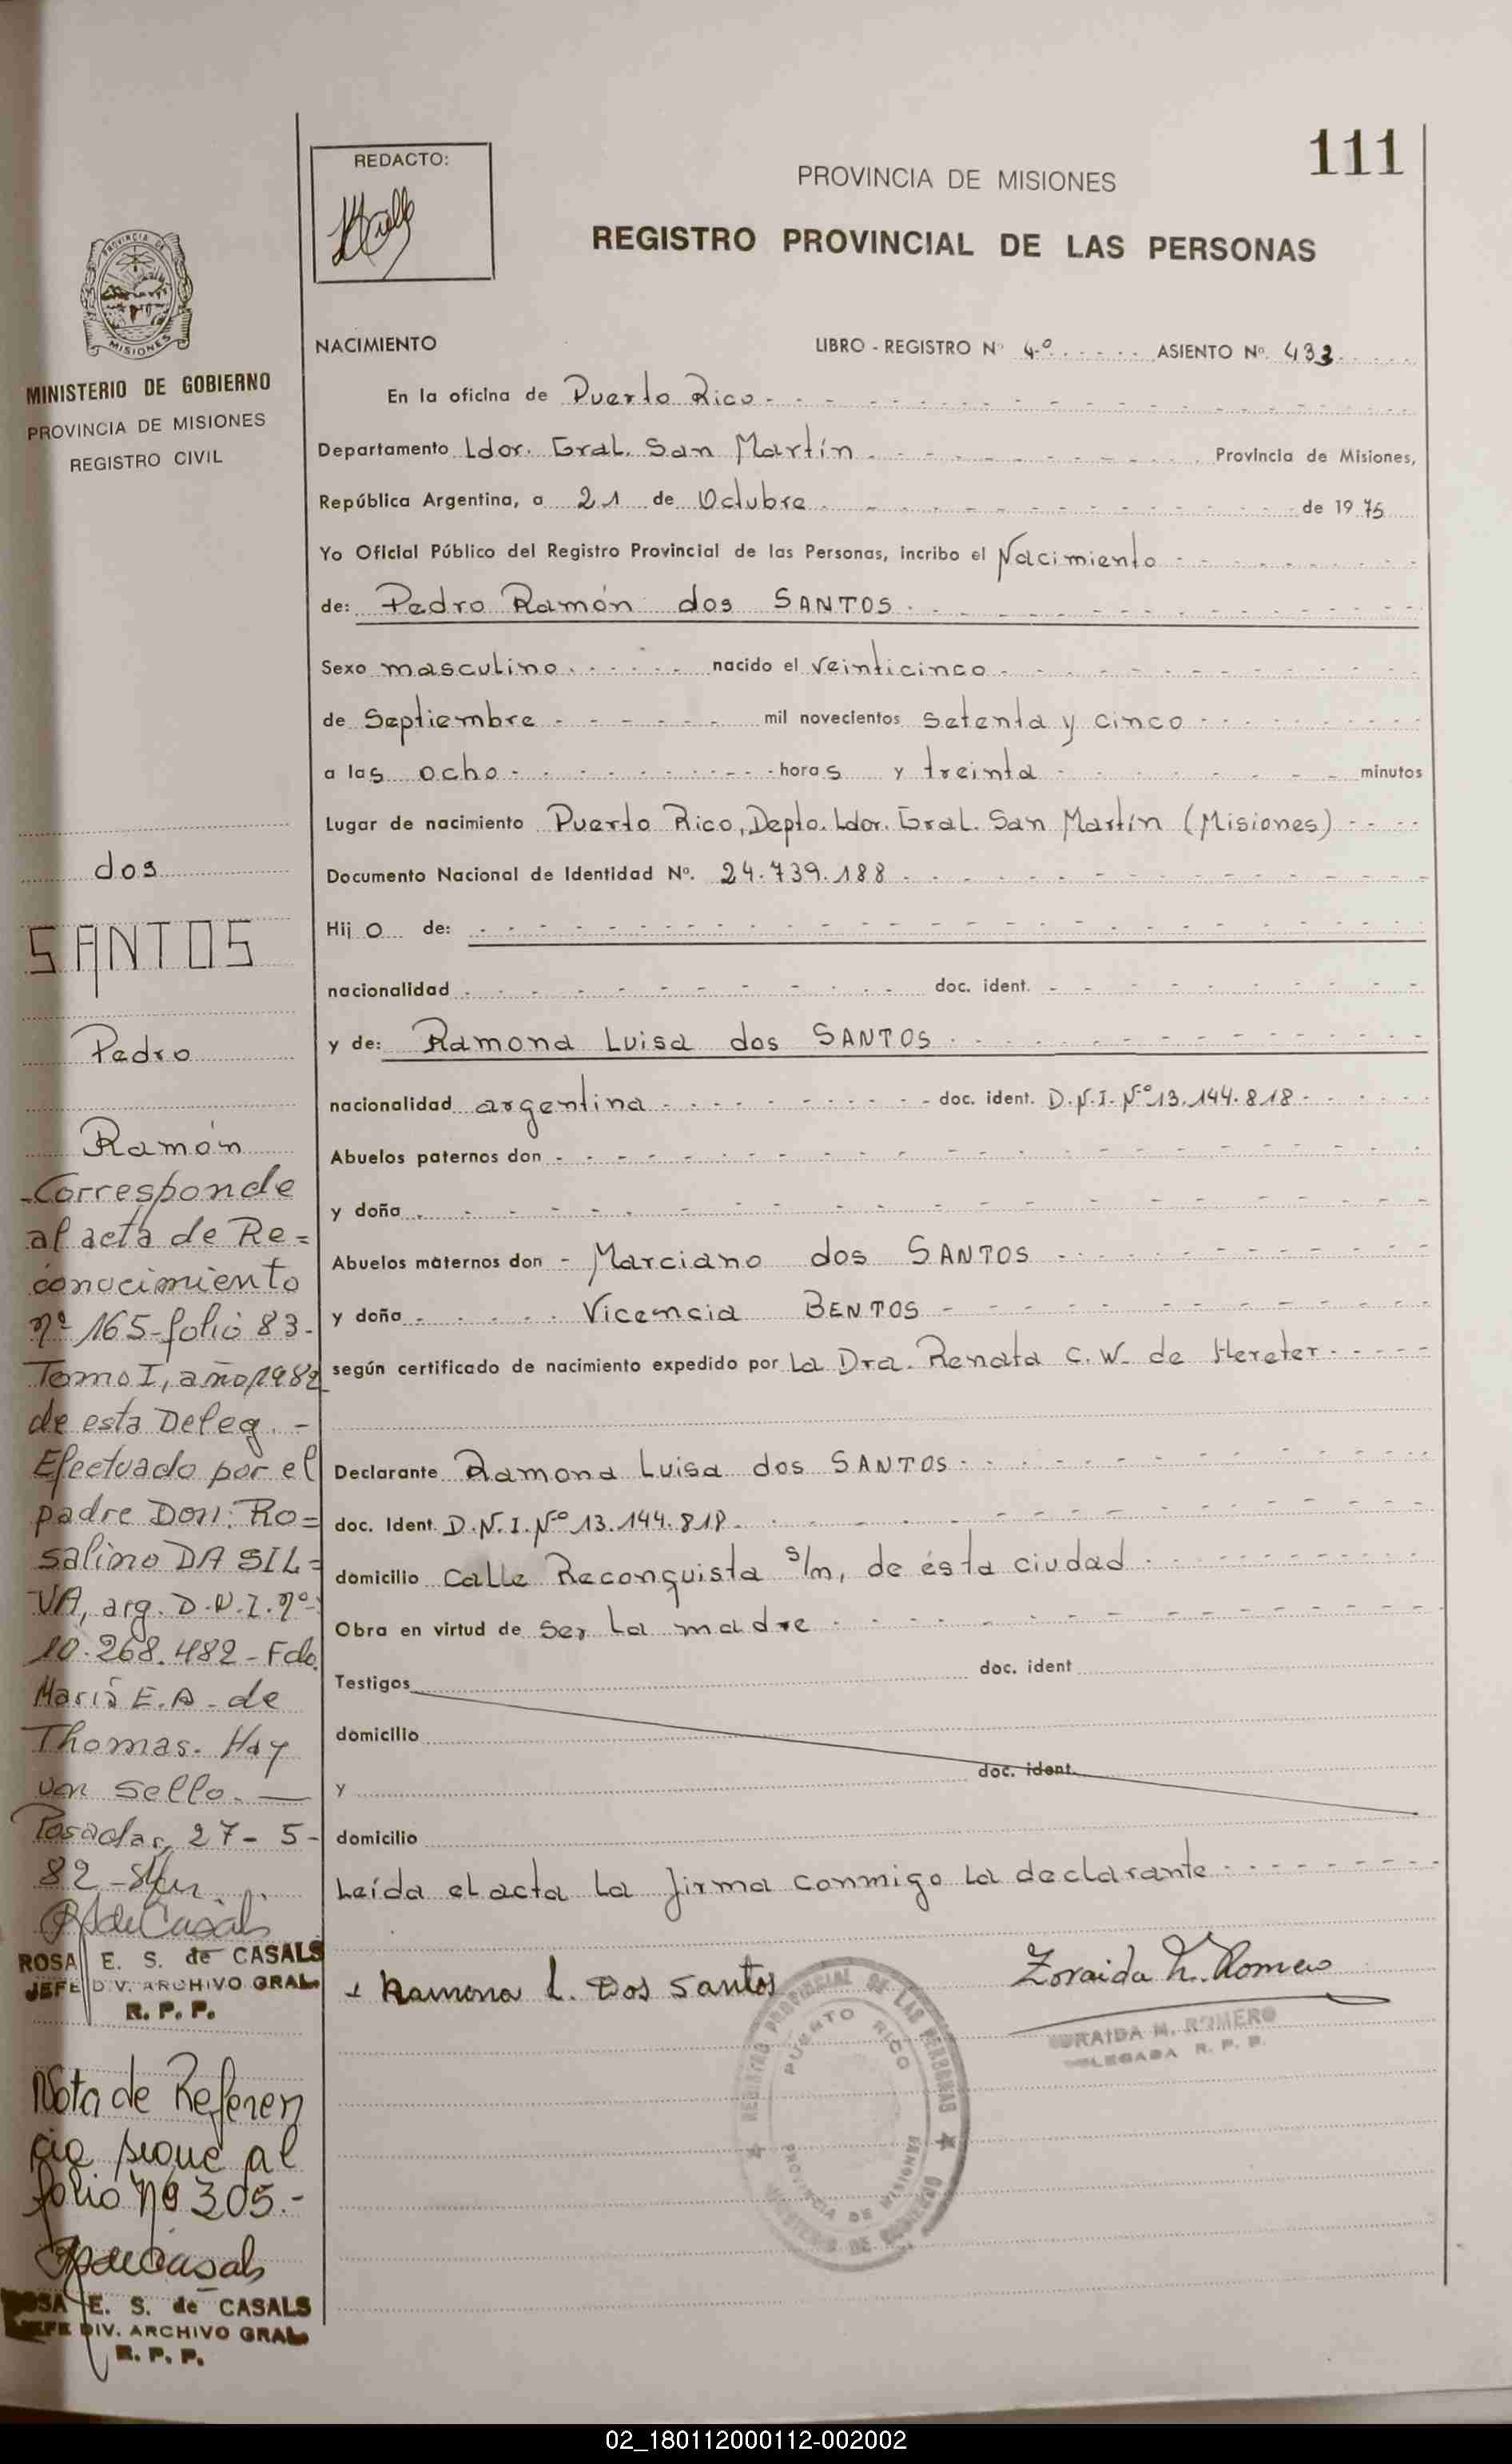 111
REDACTO:
PROVINCIA DE MISIONES
REGISTRO PROVINCIAL DE LAS PERSONAS
PROVINCIA DE
MISIONES
MINISTERIO DE GOBIERNO
PROVINCIA DE MISIONES
REGISTRO CIVIL
dos
SANTOS
Pedro
Ramón
Corresponde
al acta de Re=
conocimiento
nº 165-folio 83-
Tomo I, año 1982
de esta Deleg. -
Efectuado por el
padre Don: Ro=
salino DA SIL=
VA, arg. D.N.I. nº
10.268.482 - Fdo.
María E.A. de
Thomas. Hay
un sello. —
Posadas, 27 - 5 -
82 -
ROSA E. S. de CASALS
JEFE DIV. ARCHIVO GRAL
R. P. P.
Nota de Referen
cia sigue al
folio Nº 305.-
ROSA E. S. de CASALS
JEFE DIV. ARCHIVO GRAL
R. P. P.
NACIMIENTO LIBRO - REGISTRO Nº 4º ASIENTO Nº 433
En la oficina de Puerto Rico
Departamento Ldor. Gral. San Martín Provincia de Misiones,
República Argentina, a 21 de Octubre de 1975
Yo Oficial Público del Registro Provincial de las Personas, incribo el Nacimiento
de: Pedro Ramón dos SANTOS
Sexo masculino nacido el veinticinco
de Septiembre mil novecientos setenta y cinco
a las ocho horas y treinta minutos
Lugar de nacimiento Puerto Rico, Depto. Ldor. Gral. San Martín (Misiones)
Documento Nacional de Identidad Nº. 24.739.188
Hijo de:
nacionalidad doc. ident.
y de: Ramona Luisa dos SANTOS
nacionalidad argentina doc. ident. D.N.I. Nº 13.144.818
Abuelos paternos don
y doña
Abuelos maternos don Marciano dos SANTOS
y doña Vicencia BENTOS
según certificado de nacimiento expedido por La Dra. Renata C. W. de Hereter
Declarante Ramona Luisa dos SANTOS
doc. Ident. D.N.I. Nº 13.144.818
domicilio Calle Reconquista s/n, de ésta ciudad
Obra en virtud de ser la madre
Testigos doc. ident
domicilio
y doc. ident.
domicilio
Leída el acta la firma conmigo la declarante
Ramona L. Dos Santos
Zoraida N. Romero
ZORAIDA N. ROMERO
DELEGADA R. P. P.
REGISTRO PROVINCIAL DE LAS PERSONAS
PUERTO RICO
PROVINCIA DE MISIONES
MINISTERIO DE GOBIERNO
02_180112000112-002002